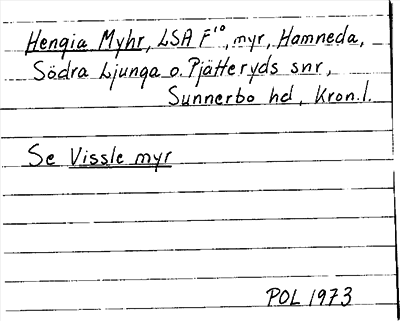 Hengia Myhr, LSA F¹⁰, myr, Hamneda,
Södra Ljunga o. Pjätteryds snr,
Sunnerbo hd, Kron.l.
Se Vissle myr
POL 1973